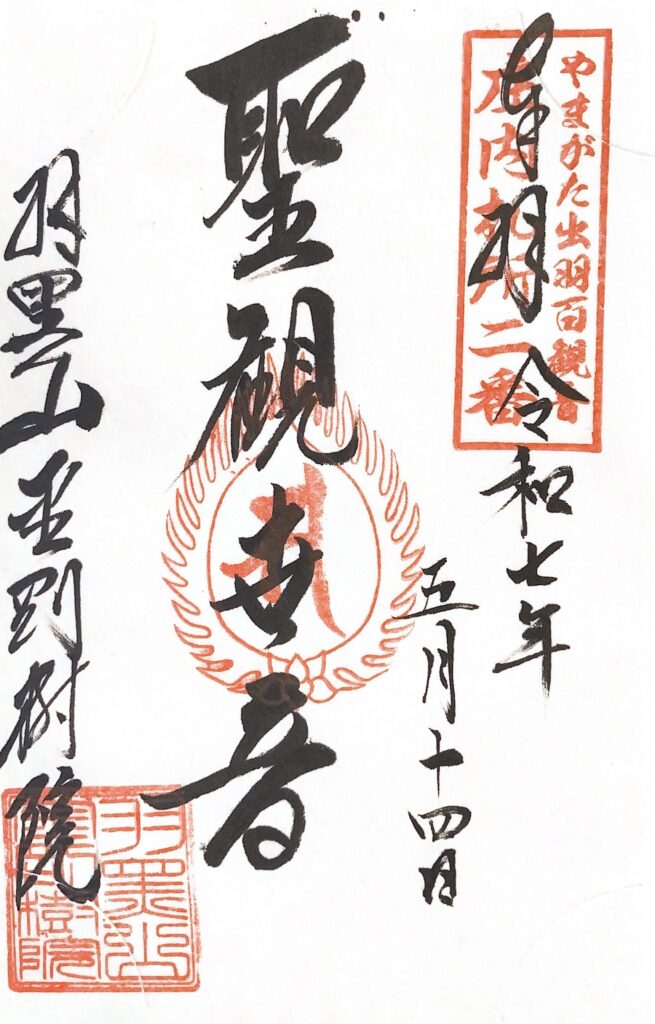 やまがた出羽百観音
庄内札所二番
奉拝 令和七年
五月十四日
聖観世音
羽黒山金剛樹院
羽黒山
樹院